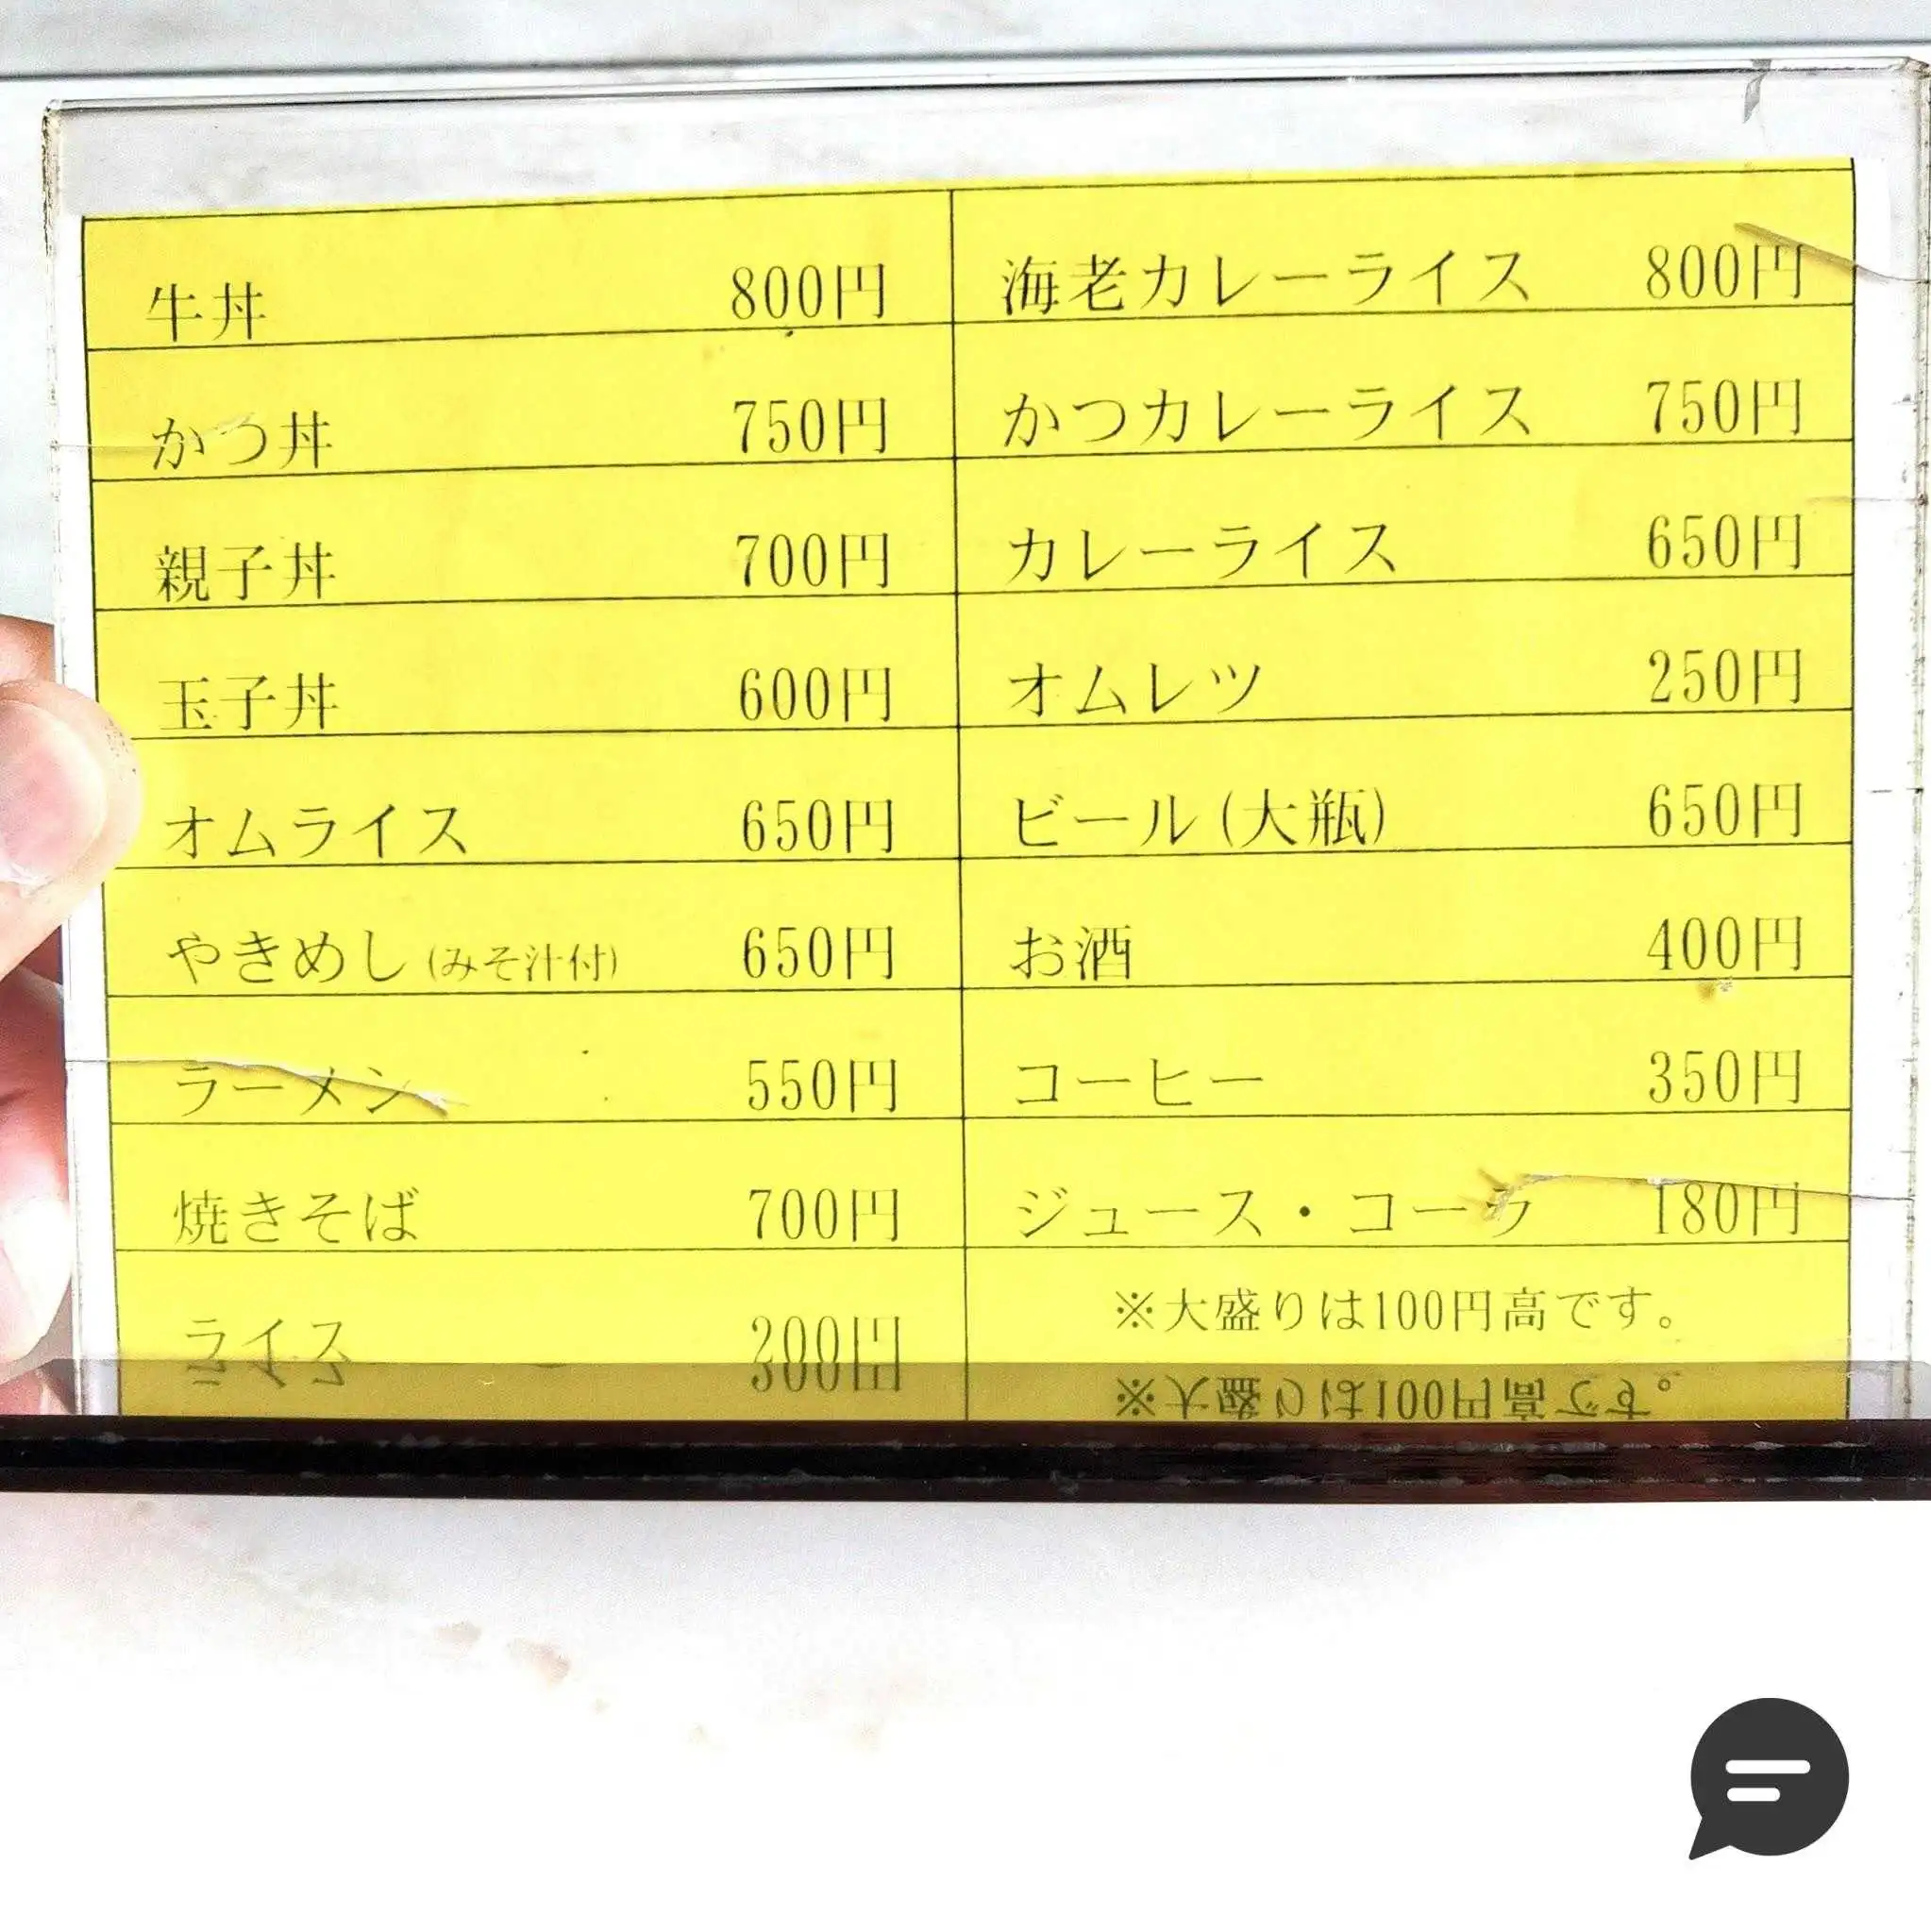 牛丼 800円
かつ丼 750円
親子丼 700円
玉子丼 600円
オムライス 650円
やきめし(みそ汁付) 650円
ラーメン 550円
焼きそば 700円
ライス 200円
海老カレーライス 800円
かつカレーライス 750円
カレーライス 650円
オムレツ 250円
ビール(大瓶) 650円
お酒 400円
コーヒー 350円
ジュース・コーラ 180円
※大盛りは100円高です。